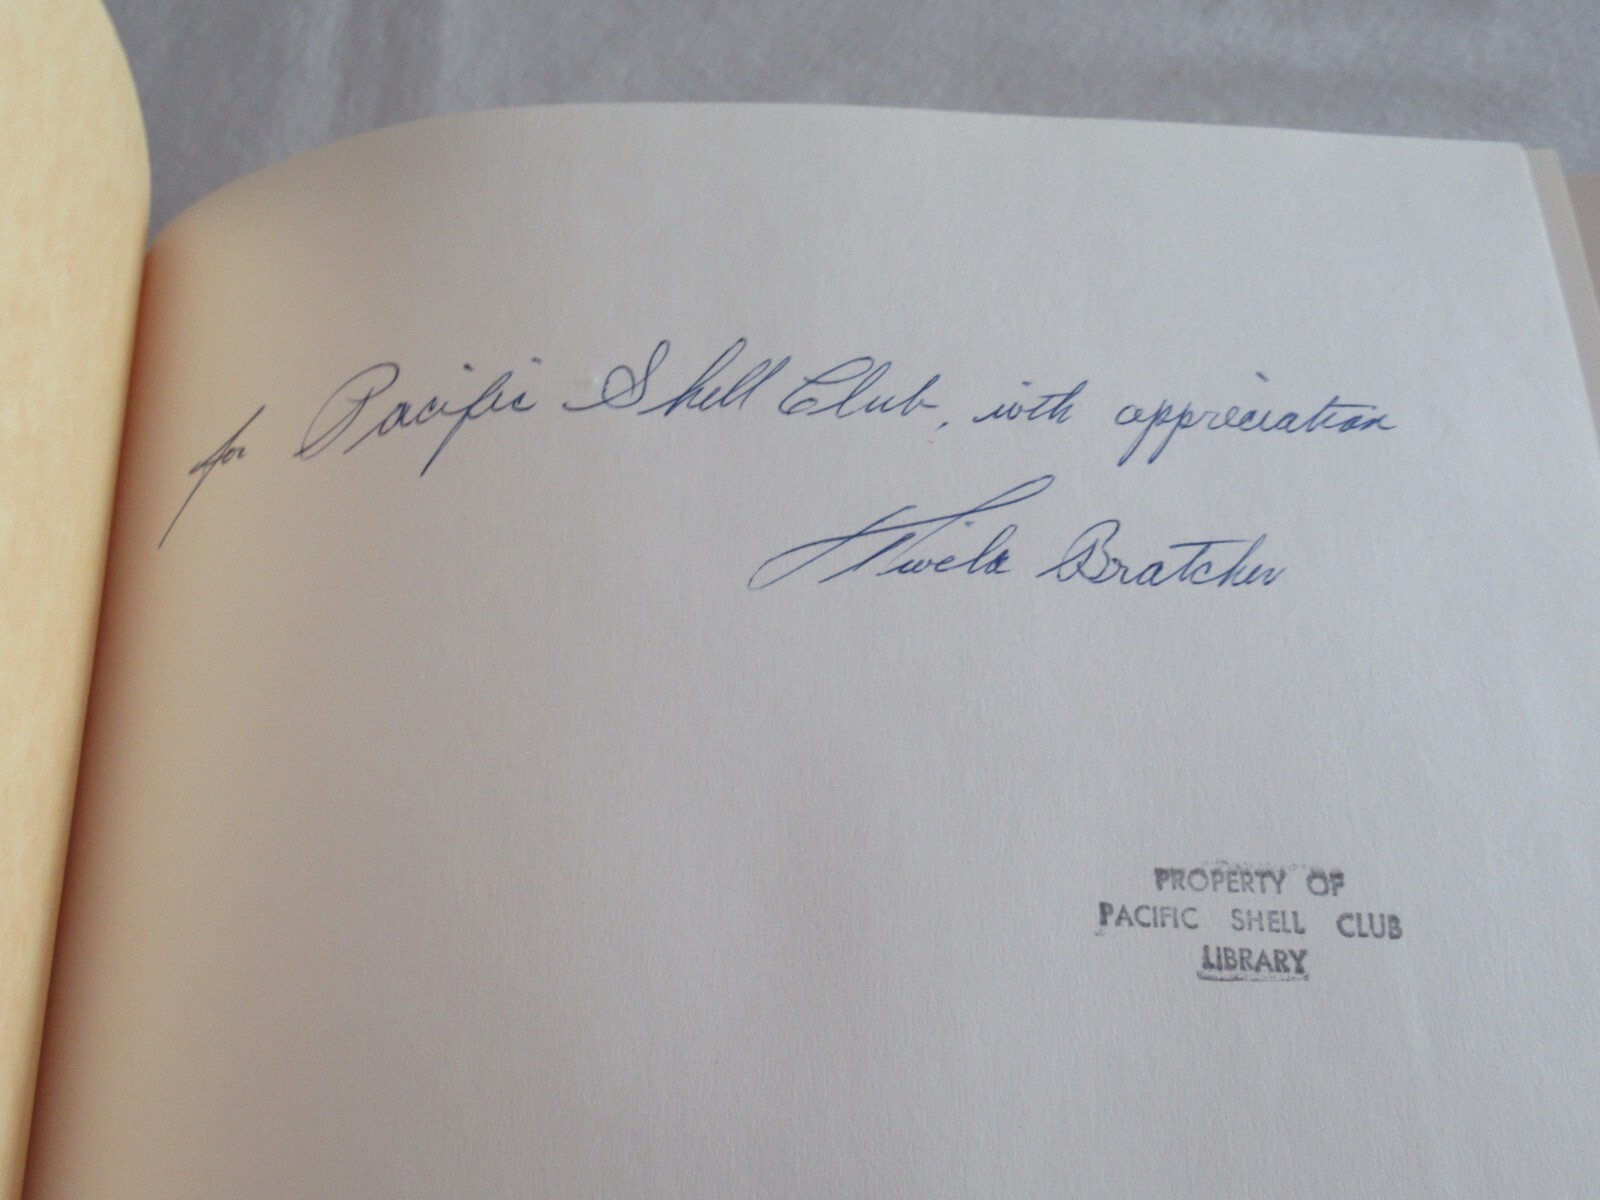 for Pacific Shell Club, with appreciation
Twila Bratcher
PROPERTY OF
PACIFIC SHELL CLUB
LIBRARY